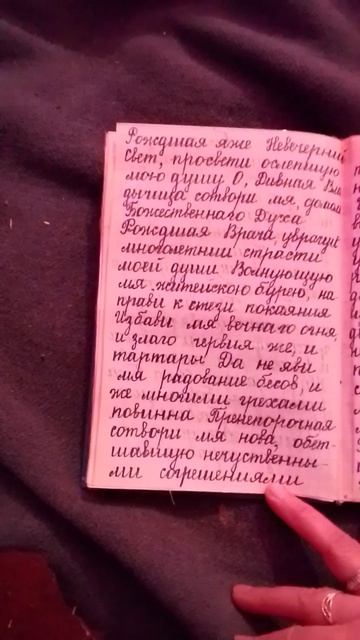 Рождшая яже Невечерний
Свет, просвети ослепшую
мою душу О, Дивная Вла
дычица сотвори мя, домом
Божественнаго Духа
Рождшая Врача, уврачуй
многолетнии страсти
моей души Волнующую
мя житейскою бурею, на
прави к стези покаяния
Избави мя вечнаго огня,
и злаго червия же, и
тартары Да не яви
мя радование бесов, и
же многими грехами
повинна Пренепорочная
сотвори мя нова, обет-
шавшую нечуственны-
ми согрешениями